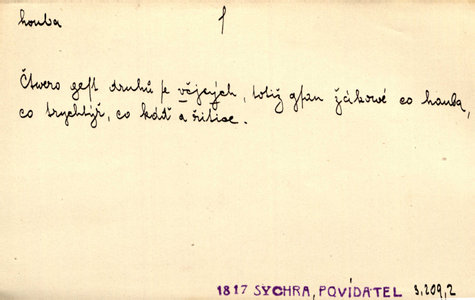 houba
Čtwero gest druhů se včjcých, totiž gsau žákowé co hauba,
co trychtýř, co káď a řitice.
1817 SYCHRA, POVÍDATEL 3,209,2